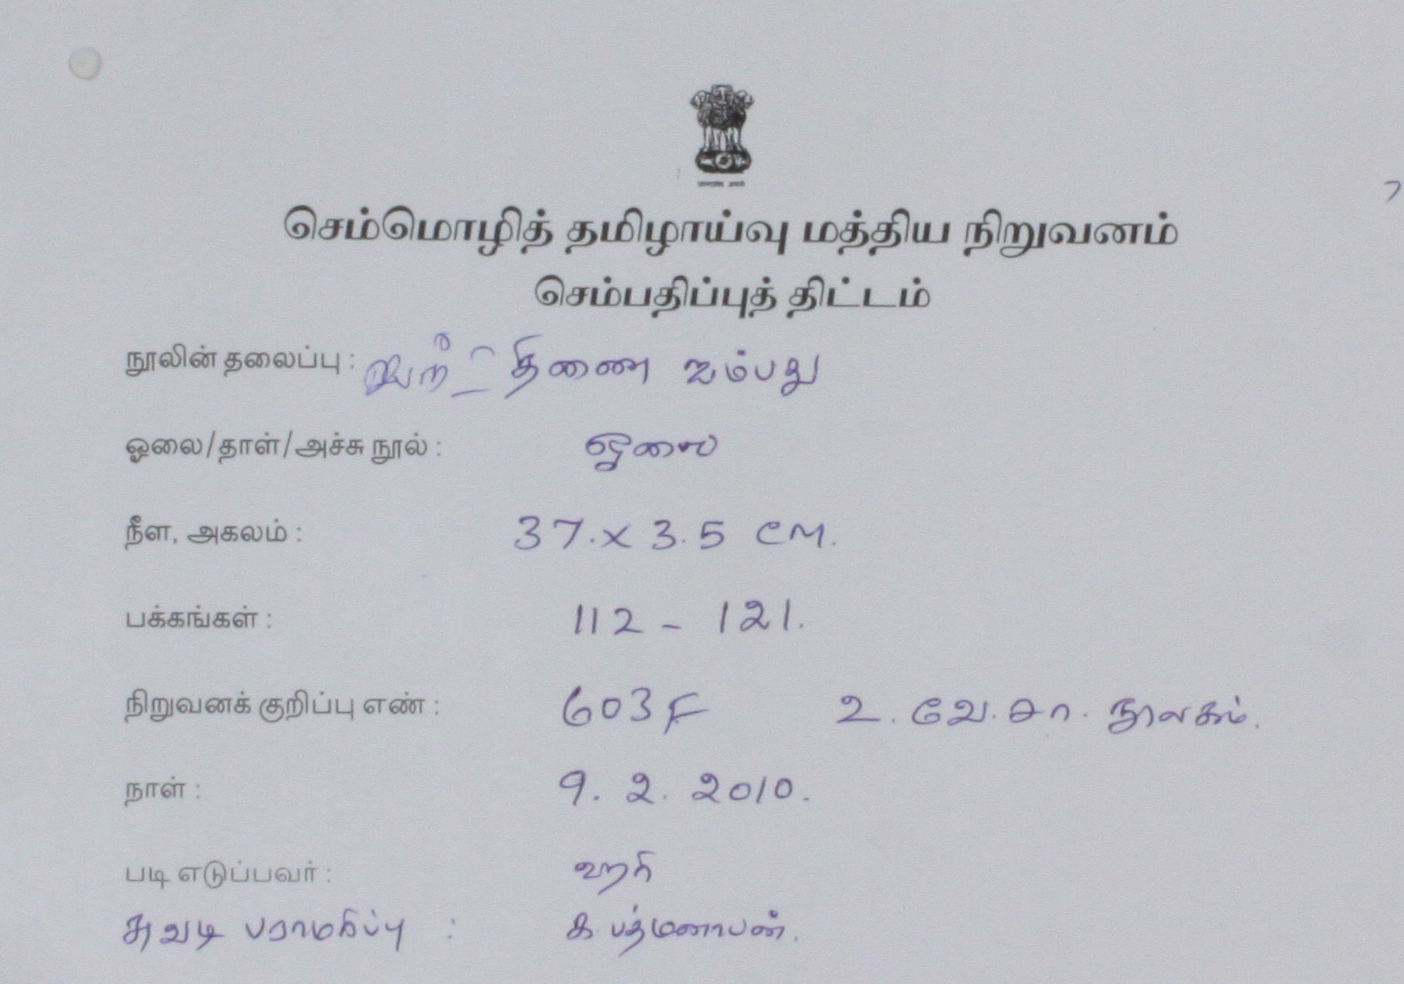 செம்மொழித் தமிழாய்வு மத்திய நிறுவனம்
செம்பதிப்புத் திட்டம்
நூலின் தலைப்பு : திணை ஐம்பது
ஓலை/தாள்/அச்சு நூல் : ஓலை
நீள, அகலம் : 37.x 3.5 CM.
பக்கங்கள் : 112 - 121.
நிறுவனக் குறிப்பு எண் : 603F உ. வே. சா. நூலகம்.
நாள் : 9. 2. 2010.
படி எடுப்பவர் : ஹரி
சுவடி பராமரிப்பு : க பத்மனாபன்.